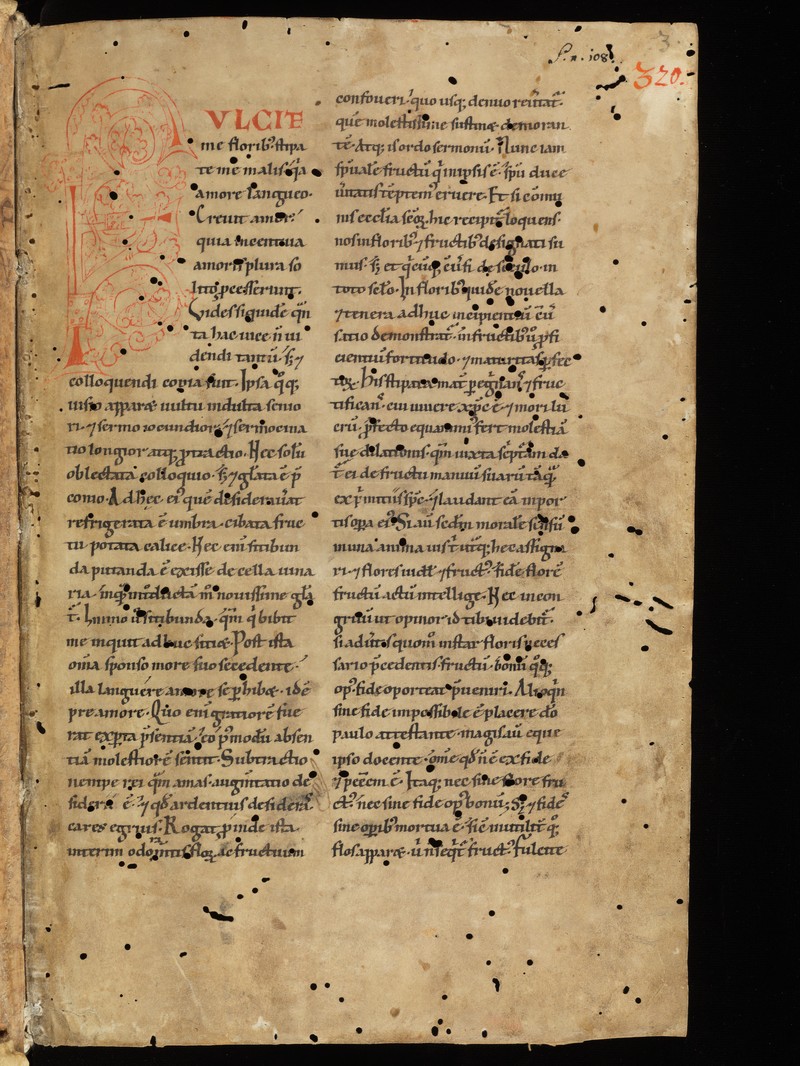 S. n. 108
3
320.
FVLCITE
me floribꝰ stipa
te me malis qa
amore langueo.
Creuit amor
quia incentiua
amoris plura so
lito p̄cesserunt.
Uides siquidē q̄m
ta hac uice n̄ ui
dendi tantū. sꝫ ⁊
colloquendi copia fuit. Ipsa qͦqꝫ
uisio apparꝫ uultu indulta sereno
ri. ⁊ sermo iocundior. ⁊ sermocina
tio longior atqꝫ ꝓtractio. Nec solū
oblectata colloquio. sꝫ ⁊ gl̄ata ē p̄
conio. Ad hec. eiꝰ quē desiderauat
refrigerata ē umbra. cibata fruc
tu. potata calice. Nec enī sitibun
da putanda ē exisse de cella uina
ria. in
t̄. Immo sitibunda. q̄m q̇ bibit
me inquit adhuc sitiet. Post ista
om̄ia sponso more suo secedente.
illa languere amore se ꝑhibet. idē
pre amore. Quo enī gratiorē fue
rat exꝑta p̄sentiā. eo p̄modū absen
tiā molestiorē sentit. Subtractio
nempe rei quā amas. augmtatio de
siderii ē. ⁊ qd̄ ardentius desideras
cares egrius. Rogat ꝓinde ista
interim odoramtis florū ac fructuum
confoueri. quo usqꝫ denuo reūtat.
quē molestissime sustinet demoran
tē. Atqꝫ is ordo sermonū. Nunc iam
spūalē fructū q̇ in ipsis ē. spū duce
tētemꝰ eruere. Et si eōmu
nis ecclīa scōꝝ. hic recipit loquens.
nos in floribꝰ ⁊ fructibꝰ designati su
mus. sꝫ et q̇cūqꝫ cōūsi de sc̄lo in
toto sc̄lo. In floribꝰ quidē nouella
⁊ tenera adhuc incipientiū cū
satio demonstrat. in fructibꝰ ū̊ ꝓfi
cientiū fortitudo. ⁊ maturitas ꝑfec
toꝝ. His stipata mat̄ ꝑegrinanꝰ ⁊ fruc
tificans. cui uiuere xp̄c ē. ⁊ mori lu
crū. ꝓfecto equanimiꝰ fert molestiā
sue dilationis. q̄m iuxta sc̄ptam da
t̄ ei de fructu manuū suaꝝ tāqꝫ
ex p̄mitiis sp̄c. ⁊ laudant eā in por
tis opa ei. Si aū sedm morale sensū
in una anima uis ut̄qꝫ hec assigna
ri. ⁊ flores uidꝫ ⁊ fructꝰ. fidē florē
fructū actū intellige. Nec incon
gruū ut opinor id tibi uidebit̄.
si aduertas quom̄ instar floris neces
sario p̄cedentis fructū. bonū qͦqꝫ
opꝰ fide oporteat p̄ueniri. Alioqn̄
sine fide impossibile ē placere dō
paulo attestante. magis aū eque
ipso docente. om̄e qd̄ n̄ ē ex fide
⁊ peccm̄ ē. Itaqꝫ nec sine flore fru
ctꝰ. nec sine fide opꝰ bonū. Sꝫ ⁊ fidēˢ
sine opibꝰ mortua ē. sic̄ inutilit̄ qͦqꝫ
flos apparꝫ. ubi n̄ seqt̄ fructꝰ. Fulcite